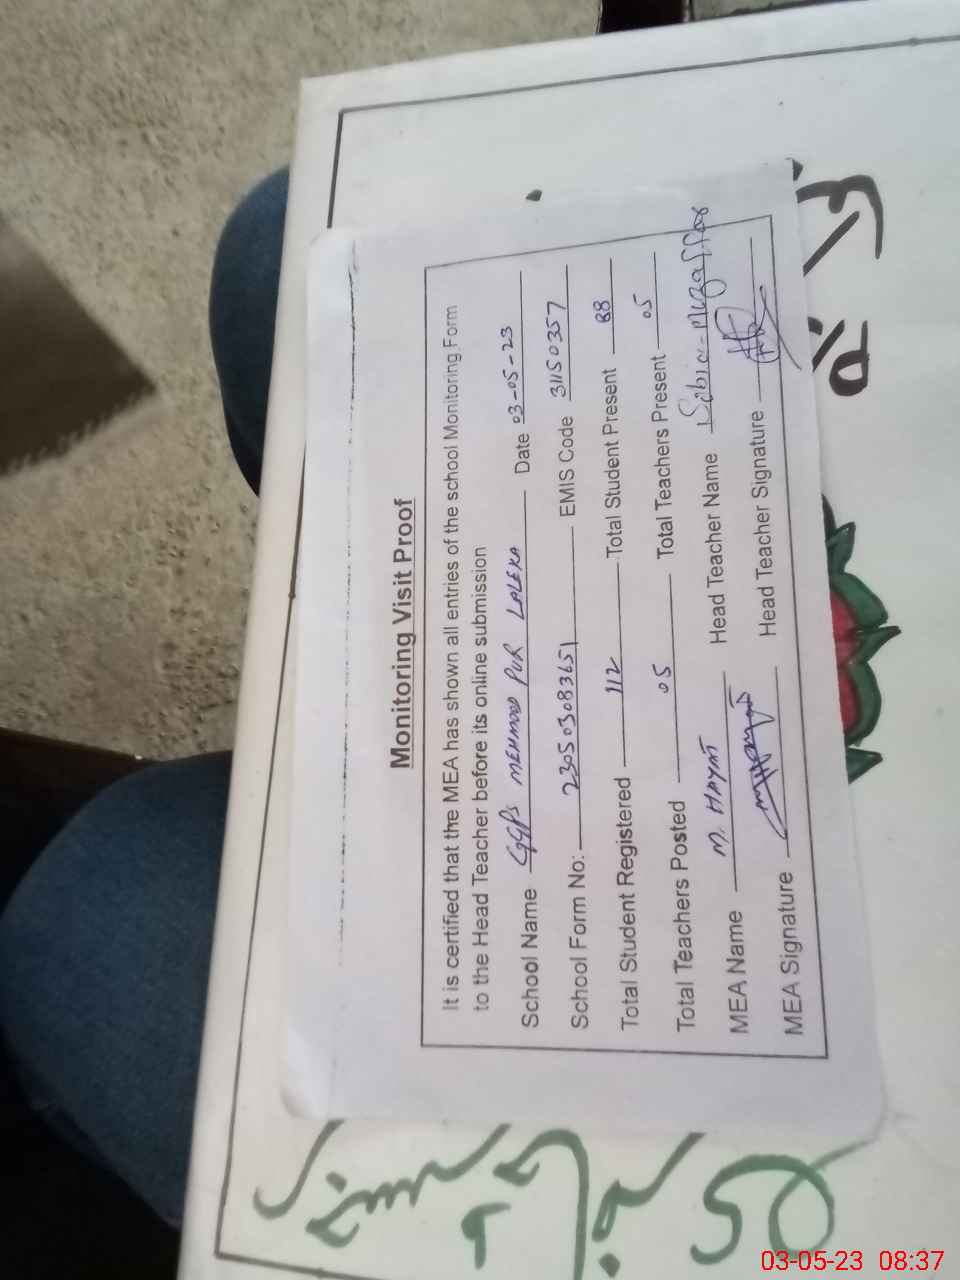 Monitoring Visit Proof
It is certified that the MEA has shown all entries of the school Monitoring Form
to the Head Teacher before its online submission
School Name GGPS MEHMOOD PUR LALEKA Date 03-05-23
School Form No: 230503083651 EMIS Code 31150357
Total Student Registered 112 Total Student Present 88
Total Teachers Posted 05 Total Teachers Present 05
MEA Name M. HAYAT Head Teacher Name Sobia-Muzaffar
MEA Signature Head Teacher Signature
03-05-23 08:37